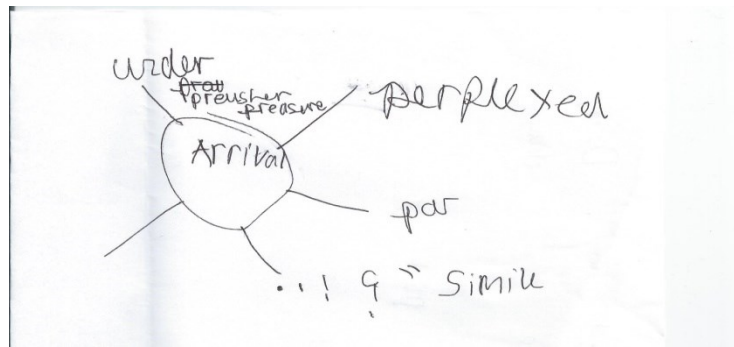 under
preusher
preasure
perplexed
Arrival
par
..! ? " simile